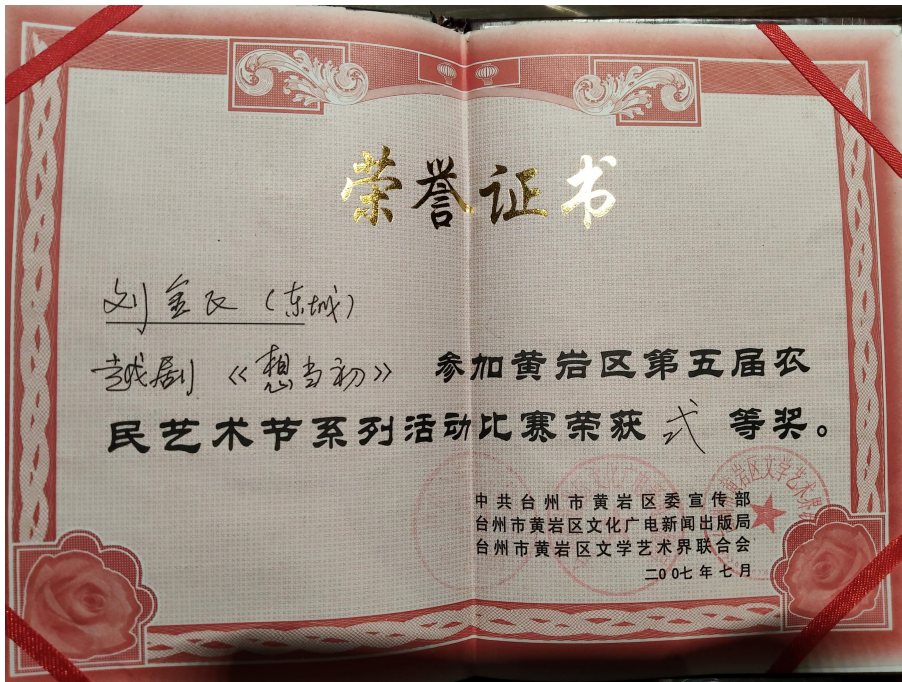 荣誉证书
刘金民（东城）
越剧《想当初》参加黄岩区第五届农
民艺术节系列活动比赛荣获弍等奖。
中共台州市黄岩区委宣传部
台州市黄岩区文化广电新闻出版局
台州市黄岩区文学艺术界联合会
二00七年七月
黄岩区文学艺术界